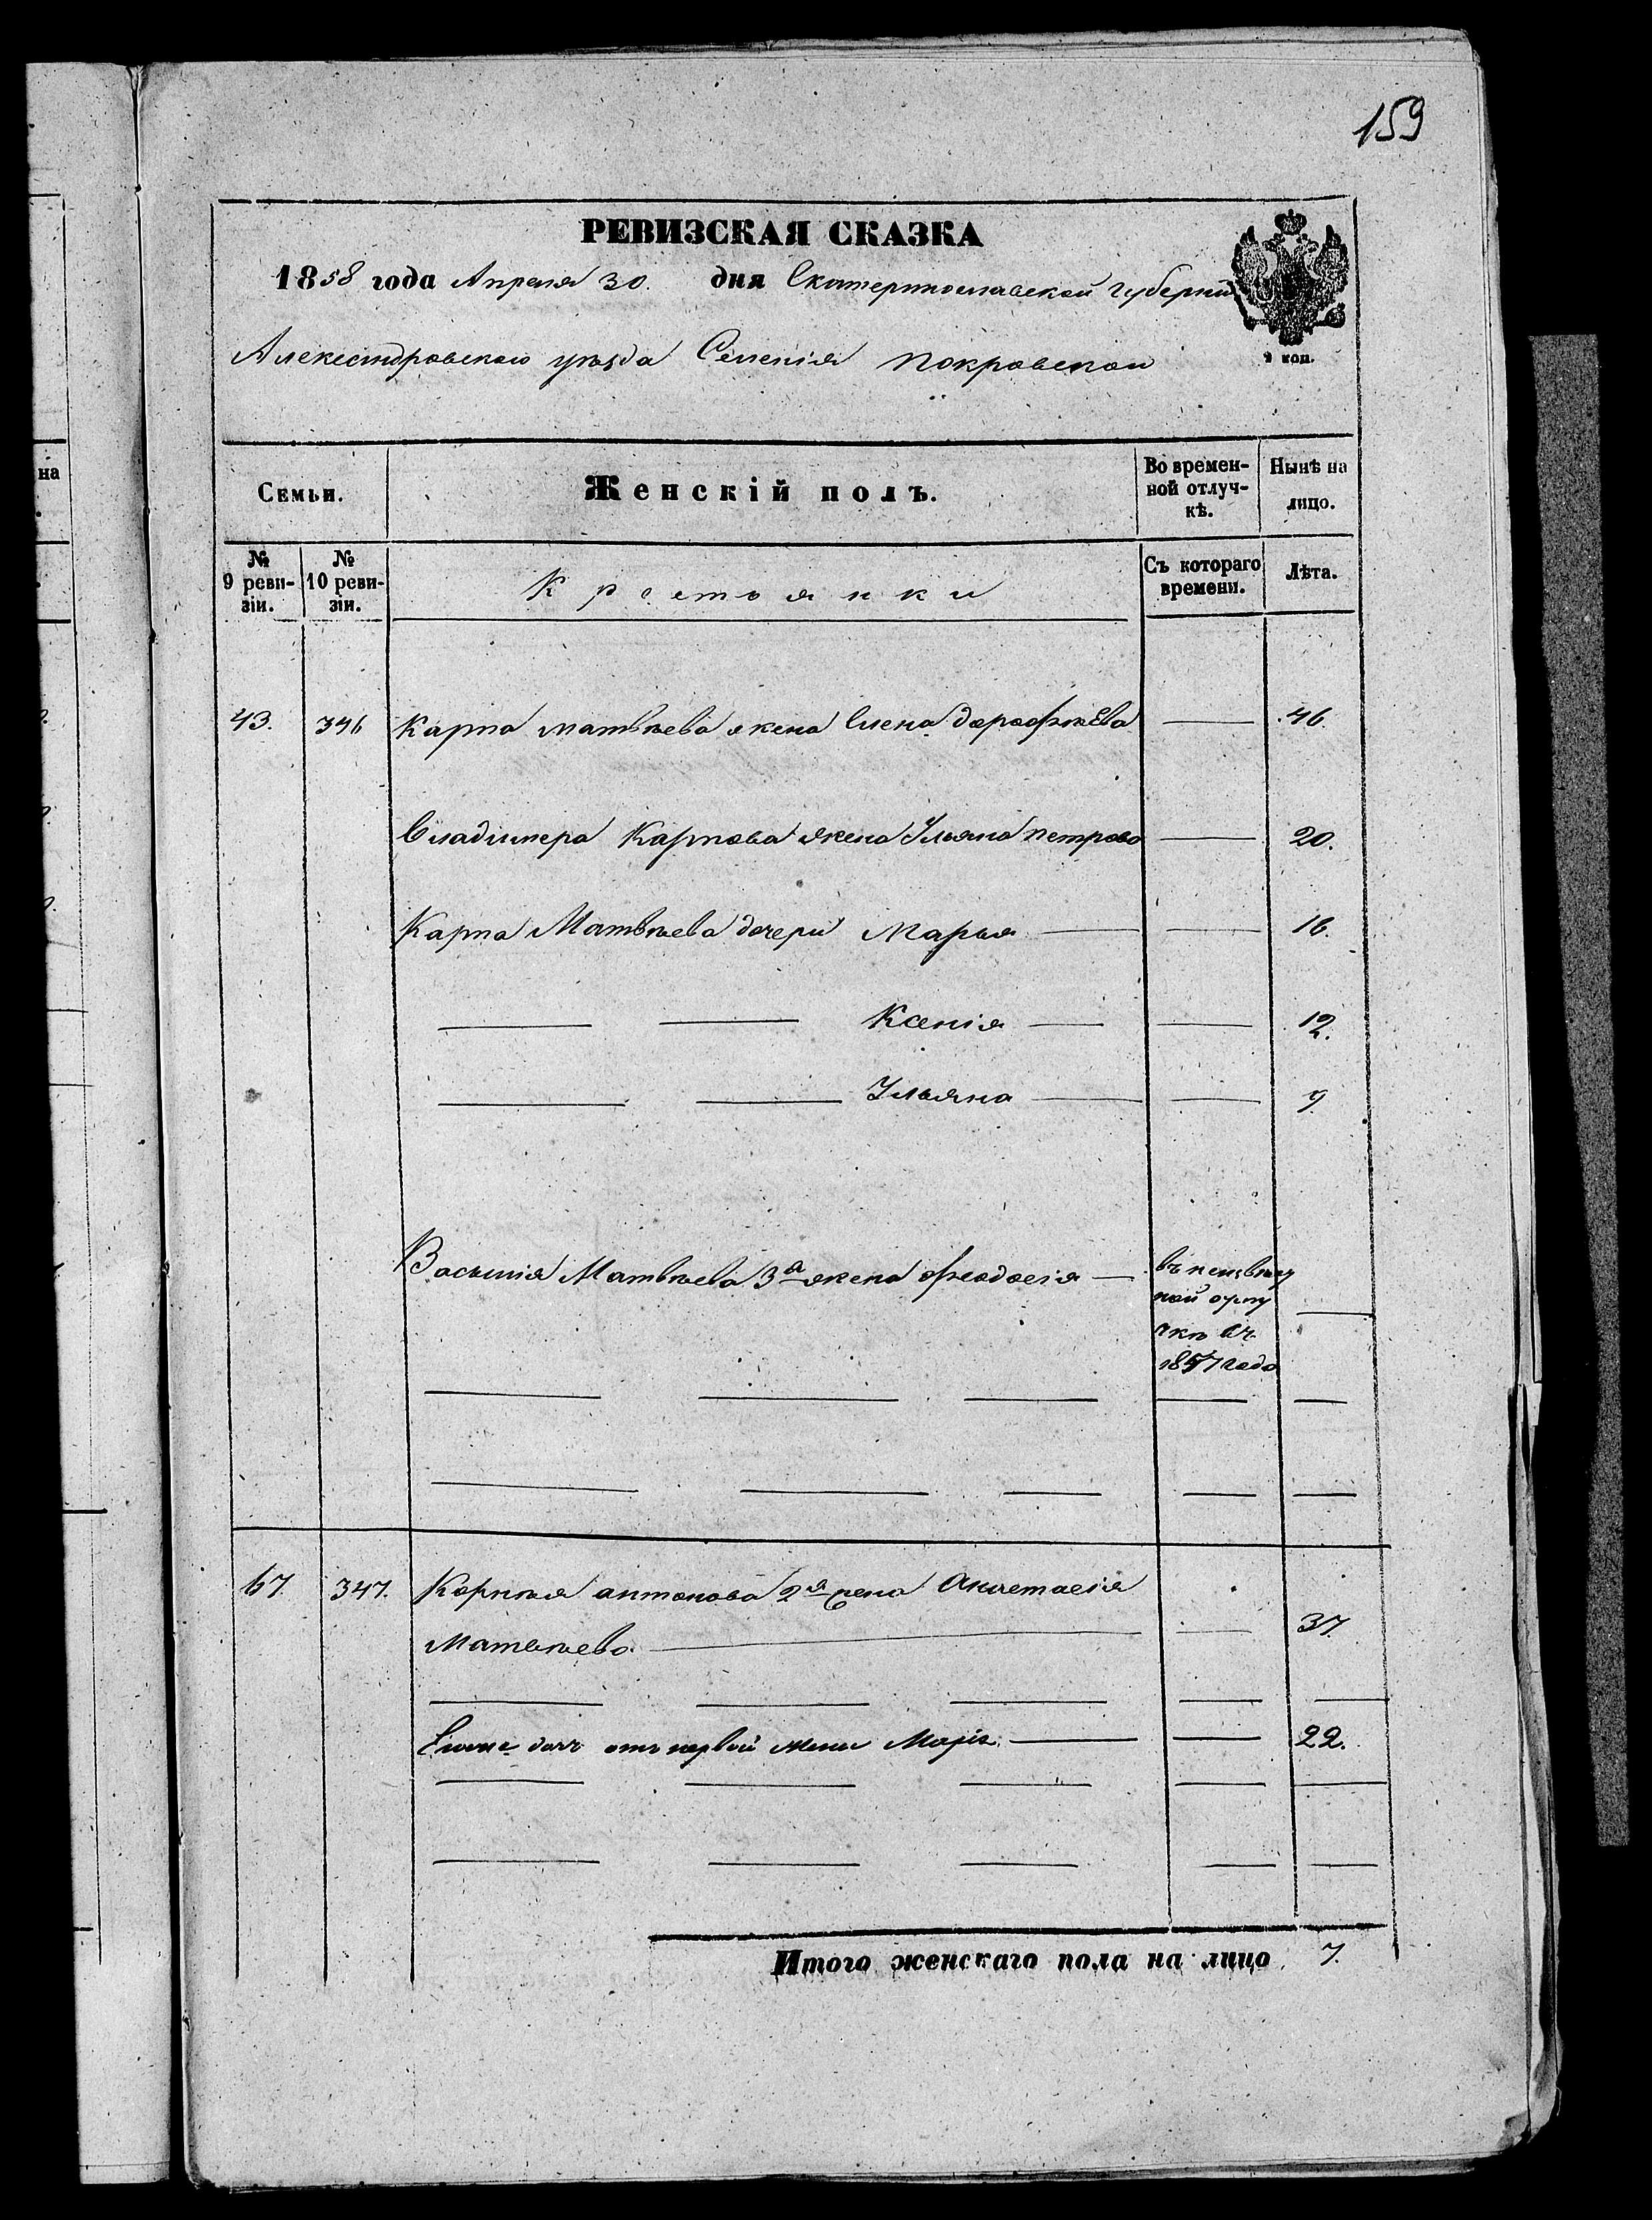 159
РЕВИЗСКАЯ СКАЗКА
1858 года Апреля 30. дня Екатеринославской Губерніи
Александровского уезда Селенія Покровскои
2 коп.
на
Семьи.
Женскій полъ.
Во времен-
ной отлуч-
кѣ.
Нынѣ на
лицо.
№
9 реви-
зіи.
№
10 реви-
зіи.
Крестьянки
Съ котораго
времени.
Лѣта.
43. 346 Карпа Матвѣева жена Елена Дорофѣева 46.
Владимера Карпова жена Ульяна Петрова 20.
Карпа Матвѣева дочери Марья 16.
Ксенія 12.
Ульяна 9
Василія Матвѣева 3я жена Феодосія
въ
ной
чкѣ
1857 года
67. 347. Корнѣя Антонова 2я жена Анастасія
Матвѣева 37.
дочь отъ первой жены Марія 22.
Итого женскаго пола на лицо 7.